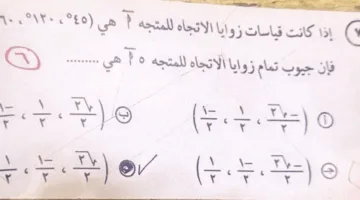 إذا كانت قياسات زوايا الاتجاه للمتجه أ هي (٤٥°، ١٢٠°، ٦٠
فإن جيوب تمام زوايا الاتجاه للمتجه ٥ أ هي .........
٦
أ (-√٢/٢ ، ١/٢ ، -١/٢)
ب (√٢/٢ ، ١/٢ ، -١/٢
ج (-√٢/٢ ، -١/٢ ، ١/٢)
(√٢/٢ ، -١/٢ ، ١/٢